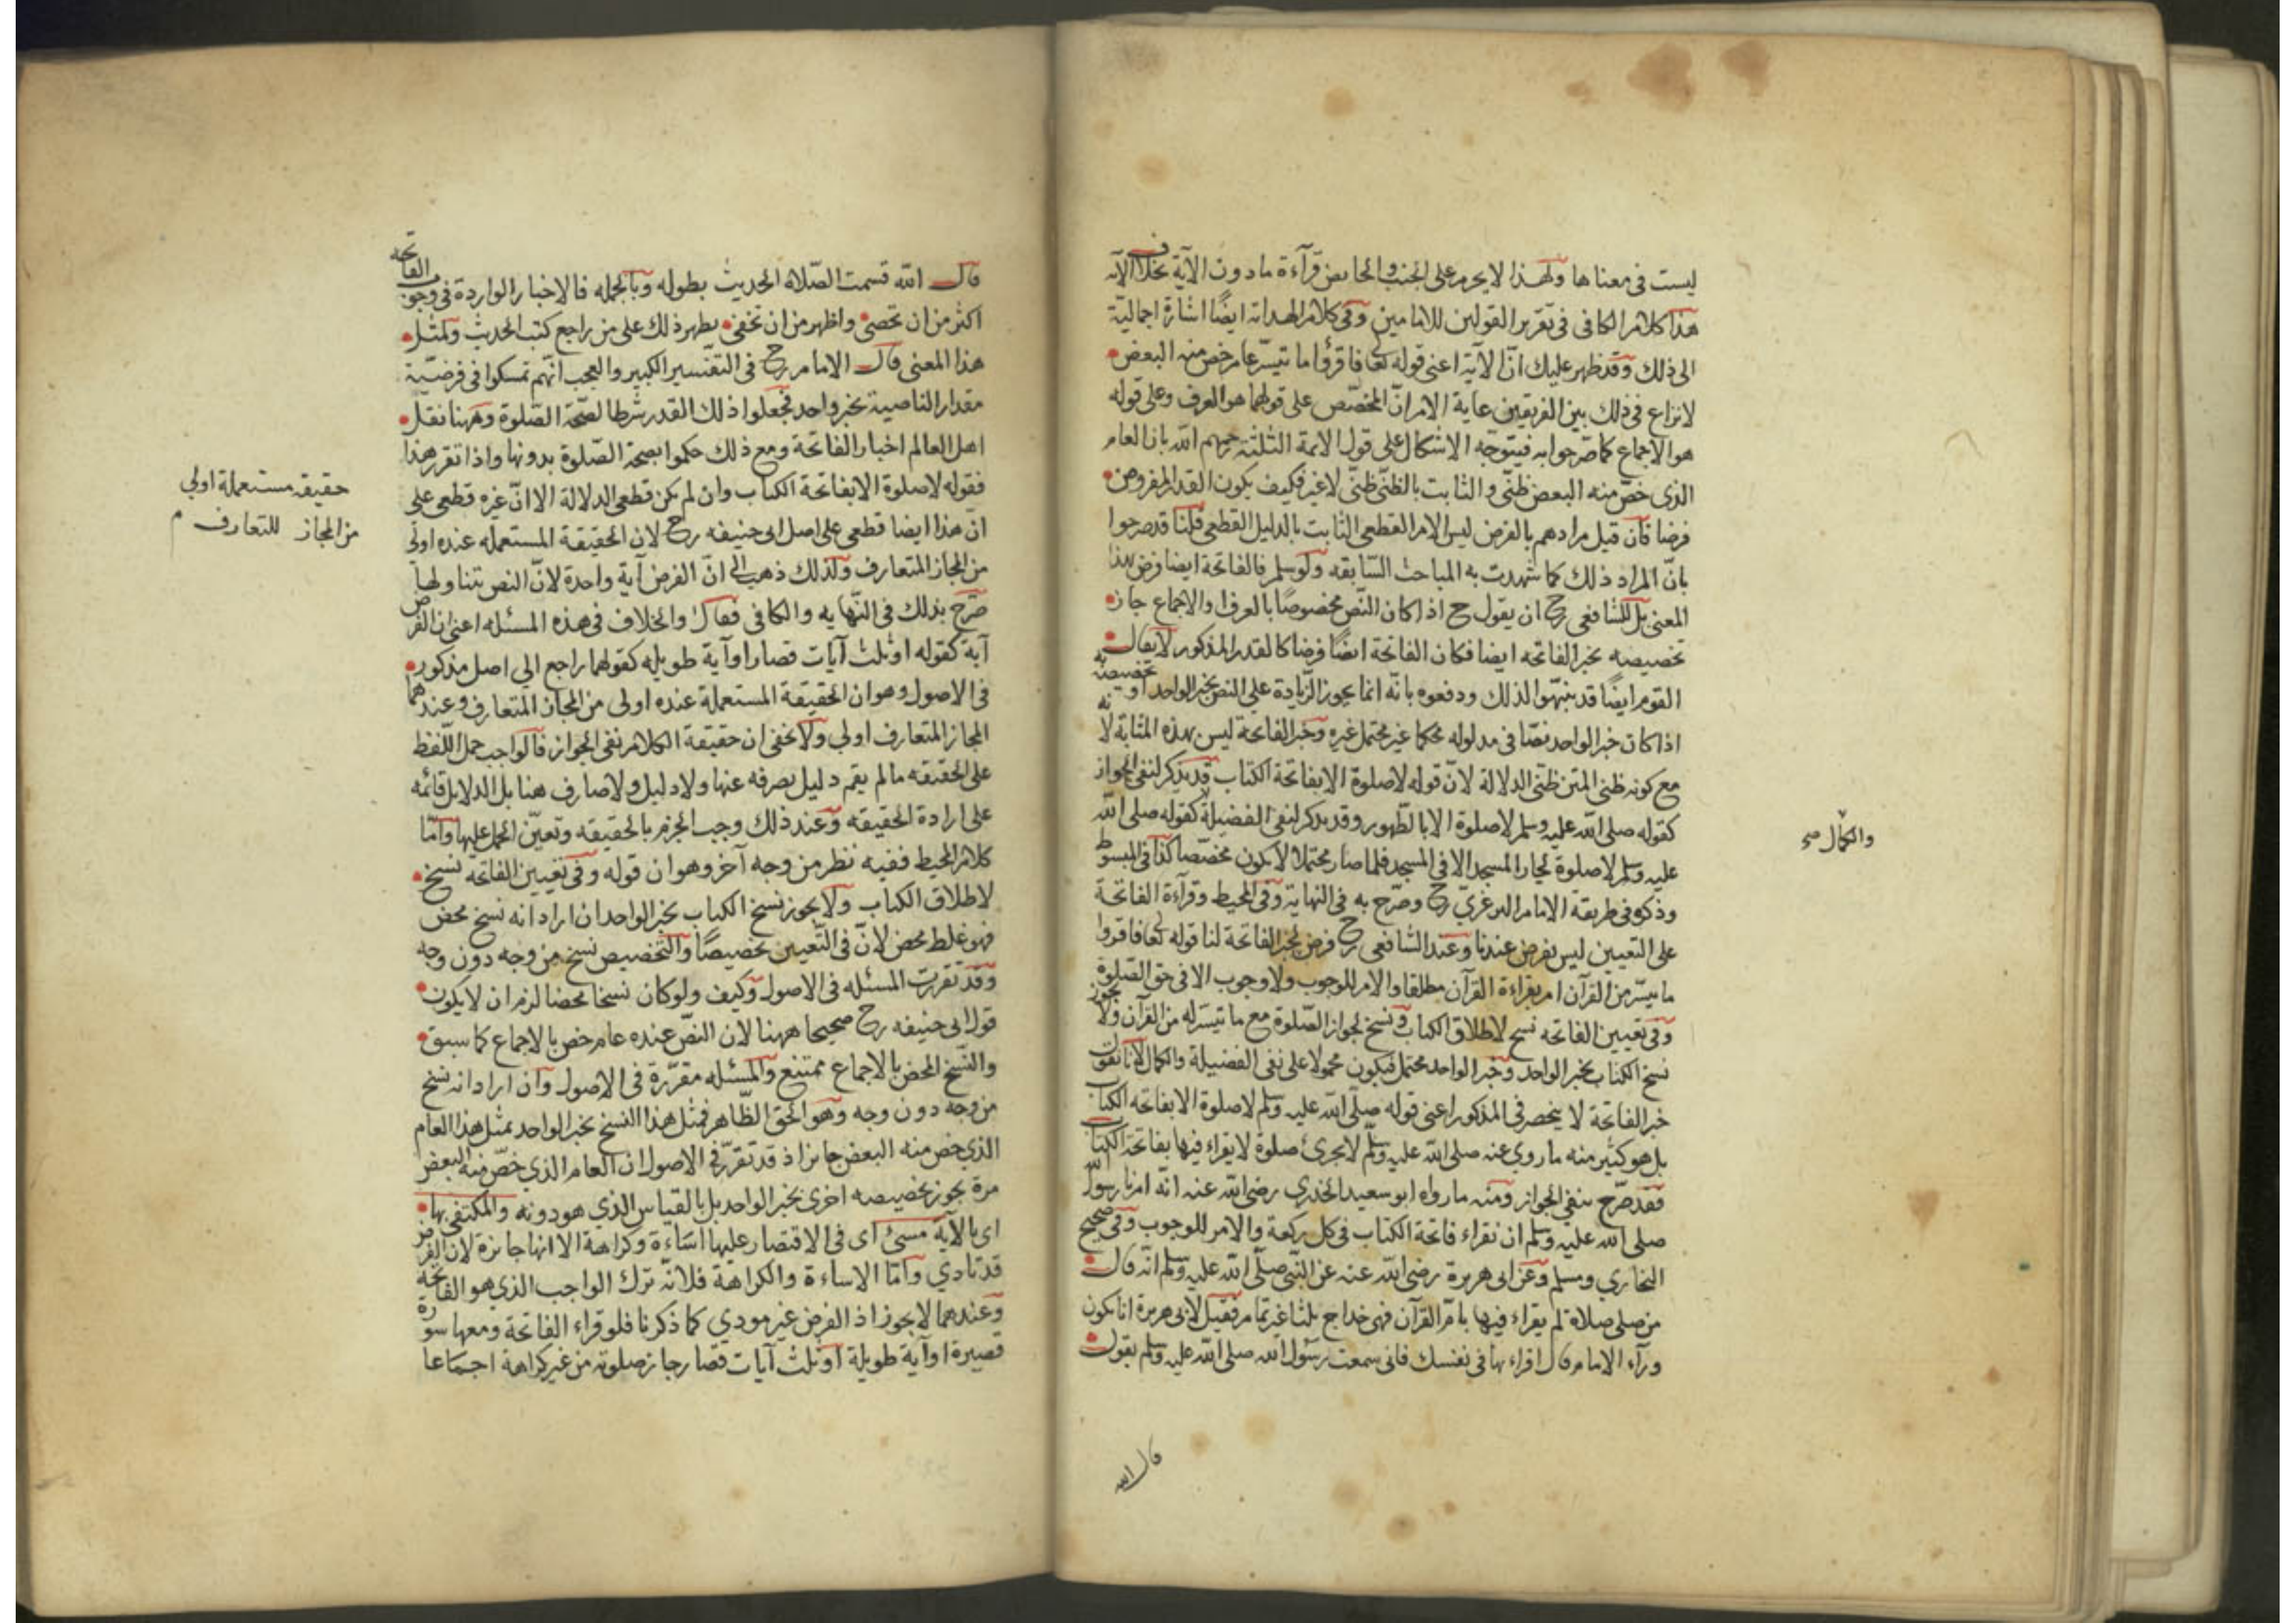 ليست في معناها ولهذا لا يحرم على الجنب والحائض قرآءة ما دون الآية بخلاف الآية
هذا كلام الكافي في تقرير القولين للامامين وفي كلام الهداية ايضًا اشارة اجمالية
الى ذلك وقد ظهر عليك انّ الآية اعني قوله تعا فاقرؤا ما تيسّر عام خص منه البعض
لا نزاع في ذلك بين الفريقين غاية الامر انّ المخصّص على قولهما هو العرف وعلى قوله
هو الاجماع كما صّرحوا به فيتوجّه الاشكال على قول الايمة الثلثة رحمهم الله بان العام
الذي خصّ منه البعض ظنّي والثابت بالظنّي ظنّي لا غير فكيف يكون القدر المفروض
فرضا فان قيل مرادهم بالفرض ليس الامر القطعي الثابت بالدليل القطعي قلنا قد صرحوا
بانّ المراد ذلك كما شهدت به المباحث السّابقه ولو سلم فالفاتحة ايضا فرض بهذا
المعنى بل للشافعي رح ان يقول ح اذا كان النّص مخصوصًا بالعرف او الاجماع جاز
تخصيصه بخبر الفاتحه ايضا فكان الفاتحة ايضًا فرضا كالقدر المذكور لا يقال
القوم ايضًا قد تنبّهوا لذلك ودفعوه بانّه انما يجوز الزّيادة على النص بخبر الواحد او تخصيصه به
اذا كان خبر الواحد نصّا في مدلوله محكما غير محتمل غيره وخبر الفاتحة ليس بهذه المثابة لانه
مع كونه ظني المتن ظنّي الدلالة لانّ قوله لا صلوة الا بفاتحة الكتاب قد يذكر لنفي الجواز
كقوله صلى الله عليه وسلم لا صلوة الا بالطّهور وقد يذكر لنفي الفضيلة كقوله صلى الله
والكمال صح
عليه وسلم لا صلوة لجار المسجد الا في المسجد فلما صار محتملا لا يكون مخصّصا كذا في المبسوط
وذكره في طريقة الامام البرغريّ رح وصّرح به في النهاية وفي المحيط وقرآءة الفاتحة
على التعيين ليس بفرض عندنا وعند الشافعي رح فرض لخبر الفاتحة لنا قوله تعا فاقروا
ما تيسّر من القرآن امر بقراءة القرآن مطلقا والامر للوجوب ولا وجوب الا في حق الصّلوة
وفي تعيين الفاتحه نسخ لاطلاق الكتاب ونسخ لجواز الصّلوة مع ما تيسّر له من القرآن ولا يجوز
نسخ الكتاب بخبر الواحد وخبر الواحد محتمل فيكون محمولا على نفي الفضيلة والكمال لانا نقول
خبر الفاتحة لا ينحصر في المذكور اعني قوله صلّى الله عليه وسلم لا صلوة الا بفاتحه الكتاب
بل هو كثير منه ما روي عنه صلى الله عليه وسلّم لا يجزئ صلوة لا يقراء فيها بفاتحة الكتاب
فقد صرّح بنفي الجواز ومنه ما رواه ابو سعيد الخدري رضي الله عنه انّه امرنا رسول الله
صلى الله عليه وسلم ان نقراء فاتحة الكتاب في كل ركعة والامر للوجوب وفي صحيح
البخاري ومسلم وعن ابى هريرة رضي الله عنه عن النّبي صلّى الله عليه وسلم انّه قال
من صلى صلاة لم يقراء فيها بامّ القرآن فهي خداج ثلثا غير تمام فقيل لابي هريرة انا نكون
ورآء الامام قال اقراء بها في نفسك فاني سمعت رسول الله صلى الله عليه وسلم يقول
قال الله
قال الله قسمت الصّلاة الحديث بطوله وبالجمله فالاخبار الواردة في وجوب الفاتحة
اكثر من ان تحصى واظهر من ان تخفى يظهر ذلك على من راجع كتب الحديث ولمثل
هذا المعنى قال الامام رح في التفسير الكبير والعجب انّهم تمسكوا في فرضيّة
مقدار الناصية بخبر واحد فجعلوا ذلك القدر شرطا لصّحة الصّلوة وههنا نقل
اهل العالم اخبار الفاتحة ومع ذلك حكموا بصحة الصّلوة بدونها واذا تقرر هذا
فقوله لا صلوة الا بفاتحة الكتاب وان لم يكن قطعي الدلالة الا انّ غيره قطعي على
انّ هذا ايضا قطعي على اصل ابى حنيفه رح لان الحقيقة المستعمله عنده اولى
حقيقة مستعملة اولي
من المجاز للتعارف م
من المجاز المتعارف ولذلك ذهب الى انّ الفرض آية واحدة لانّ النص تتناولها
صّرح بذلك في النّهايه والكافي فقال والخلاف في هذه المسئله اعني ان الفرض
آية كقوله او ثلث آيات قصار او آية طويله كقولهما راجع الي اصل مذكور
في الاصول وهو ان الحقيقة المستعملة عنده اولى من المجاز المتعارف وعندهما
المجاز المتعارف اولي ولا يخفى ان حقيقة الكلام نفي الجواز فالواجب حمل اللّفظ
على الحقيقه ما لم يقم دليل يصرفه عنها ولا دليل ولا صارف هنا بل الدلايل قائمه
على ارادة الحقيقه وعند ذلك وجب الجزم بالحقيقه وتعيّن الحمل عليها وامّا
كلام المحيط ففيه نظر من وجه آخر وهو ان قوله وفي تعيين الفاتحه نسخ
لاطلاق الكتاب ولا يجوز نسخ الكتاب بخبر الواحد ان اراد انه نسخ محض
فهو غلط محض لانّ في التّعيين تخصيصًا والتّخصيص نسخ من وجه دون وجه
وقد تقررت المسئله في الاصول وكيف ولو كان نسخا محضا لزم ان لا يكون
قول ابى حنيفه رح صحيحا ههنا لان النصّ عنده عام خص بالاجماع كما سبق
والنّسخ المحض بالاجماع ممتنع والمسئله مقرّرة في الاصول وان اراد انه نسخ
من وجه دون وجه وهو الحق الظّاهر فمثل هذا النسخ بخبر الواحد بمثل هذا العام
الذي خص منه البعض جائز اذ قد تقرّر في الاصول ان العام الذي خصّ منه البعض
مرة يجوز تخصيصه اخرى بخبر الواحد بل بالقياس الذي هو دونه والمكتفى بها
اى بالآية مسئ اى في الاقتصار عليها اسَاءة وكراهة الا انها جائزة لان الفرض
قد تادي وامّا الاساءة والكراهة فلانّه ترك الواجب الذي هو الفاتحة
وعندهما لا يجوز اذ الفرض غير مودي كما ذكرنا فلو قراء الفاتحة ومعها سورة
قصيرة او آية طويلة او ثلث آيات قصار جاز صلوته من غير كراهة اجماعا